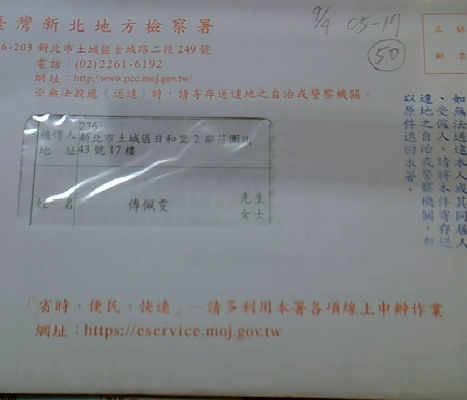 臺灣新北地方檢察署
6-203 新北市土城區金城路二段249號
電話：(02)2261-6192
網址：http://www.pcc.moj.gov.tw/
※無法投遞（送達）時，請寄存送達地之自治或警察機關。
9/4 05-17
50
正貼
郵票
236
被傳人 新北市土城區日和里2鄰莊園
地址 43號17樓
姓名 傅佩雯 先生
女士
如無法送達本人或其同居人
、受僱人，請將本件寄存送
達地之自治或警察機關，勿
以原件退回本署。
「省時、便民、快速」—請多利用本署各項線上申辦作業
網址：https://eservice.moj.gov.tw